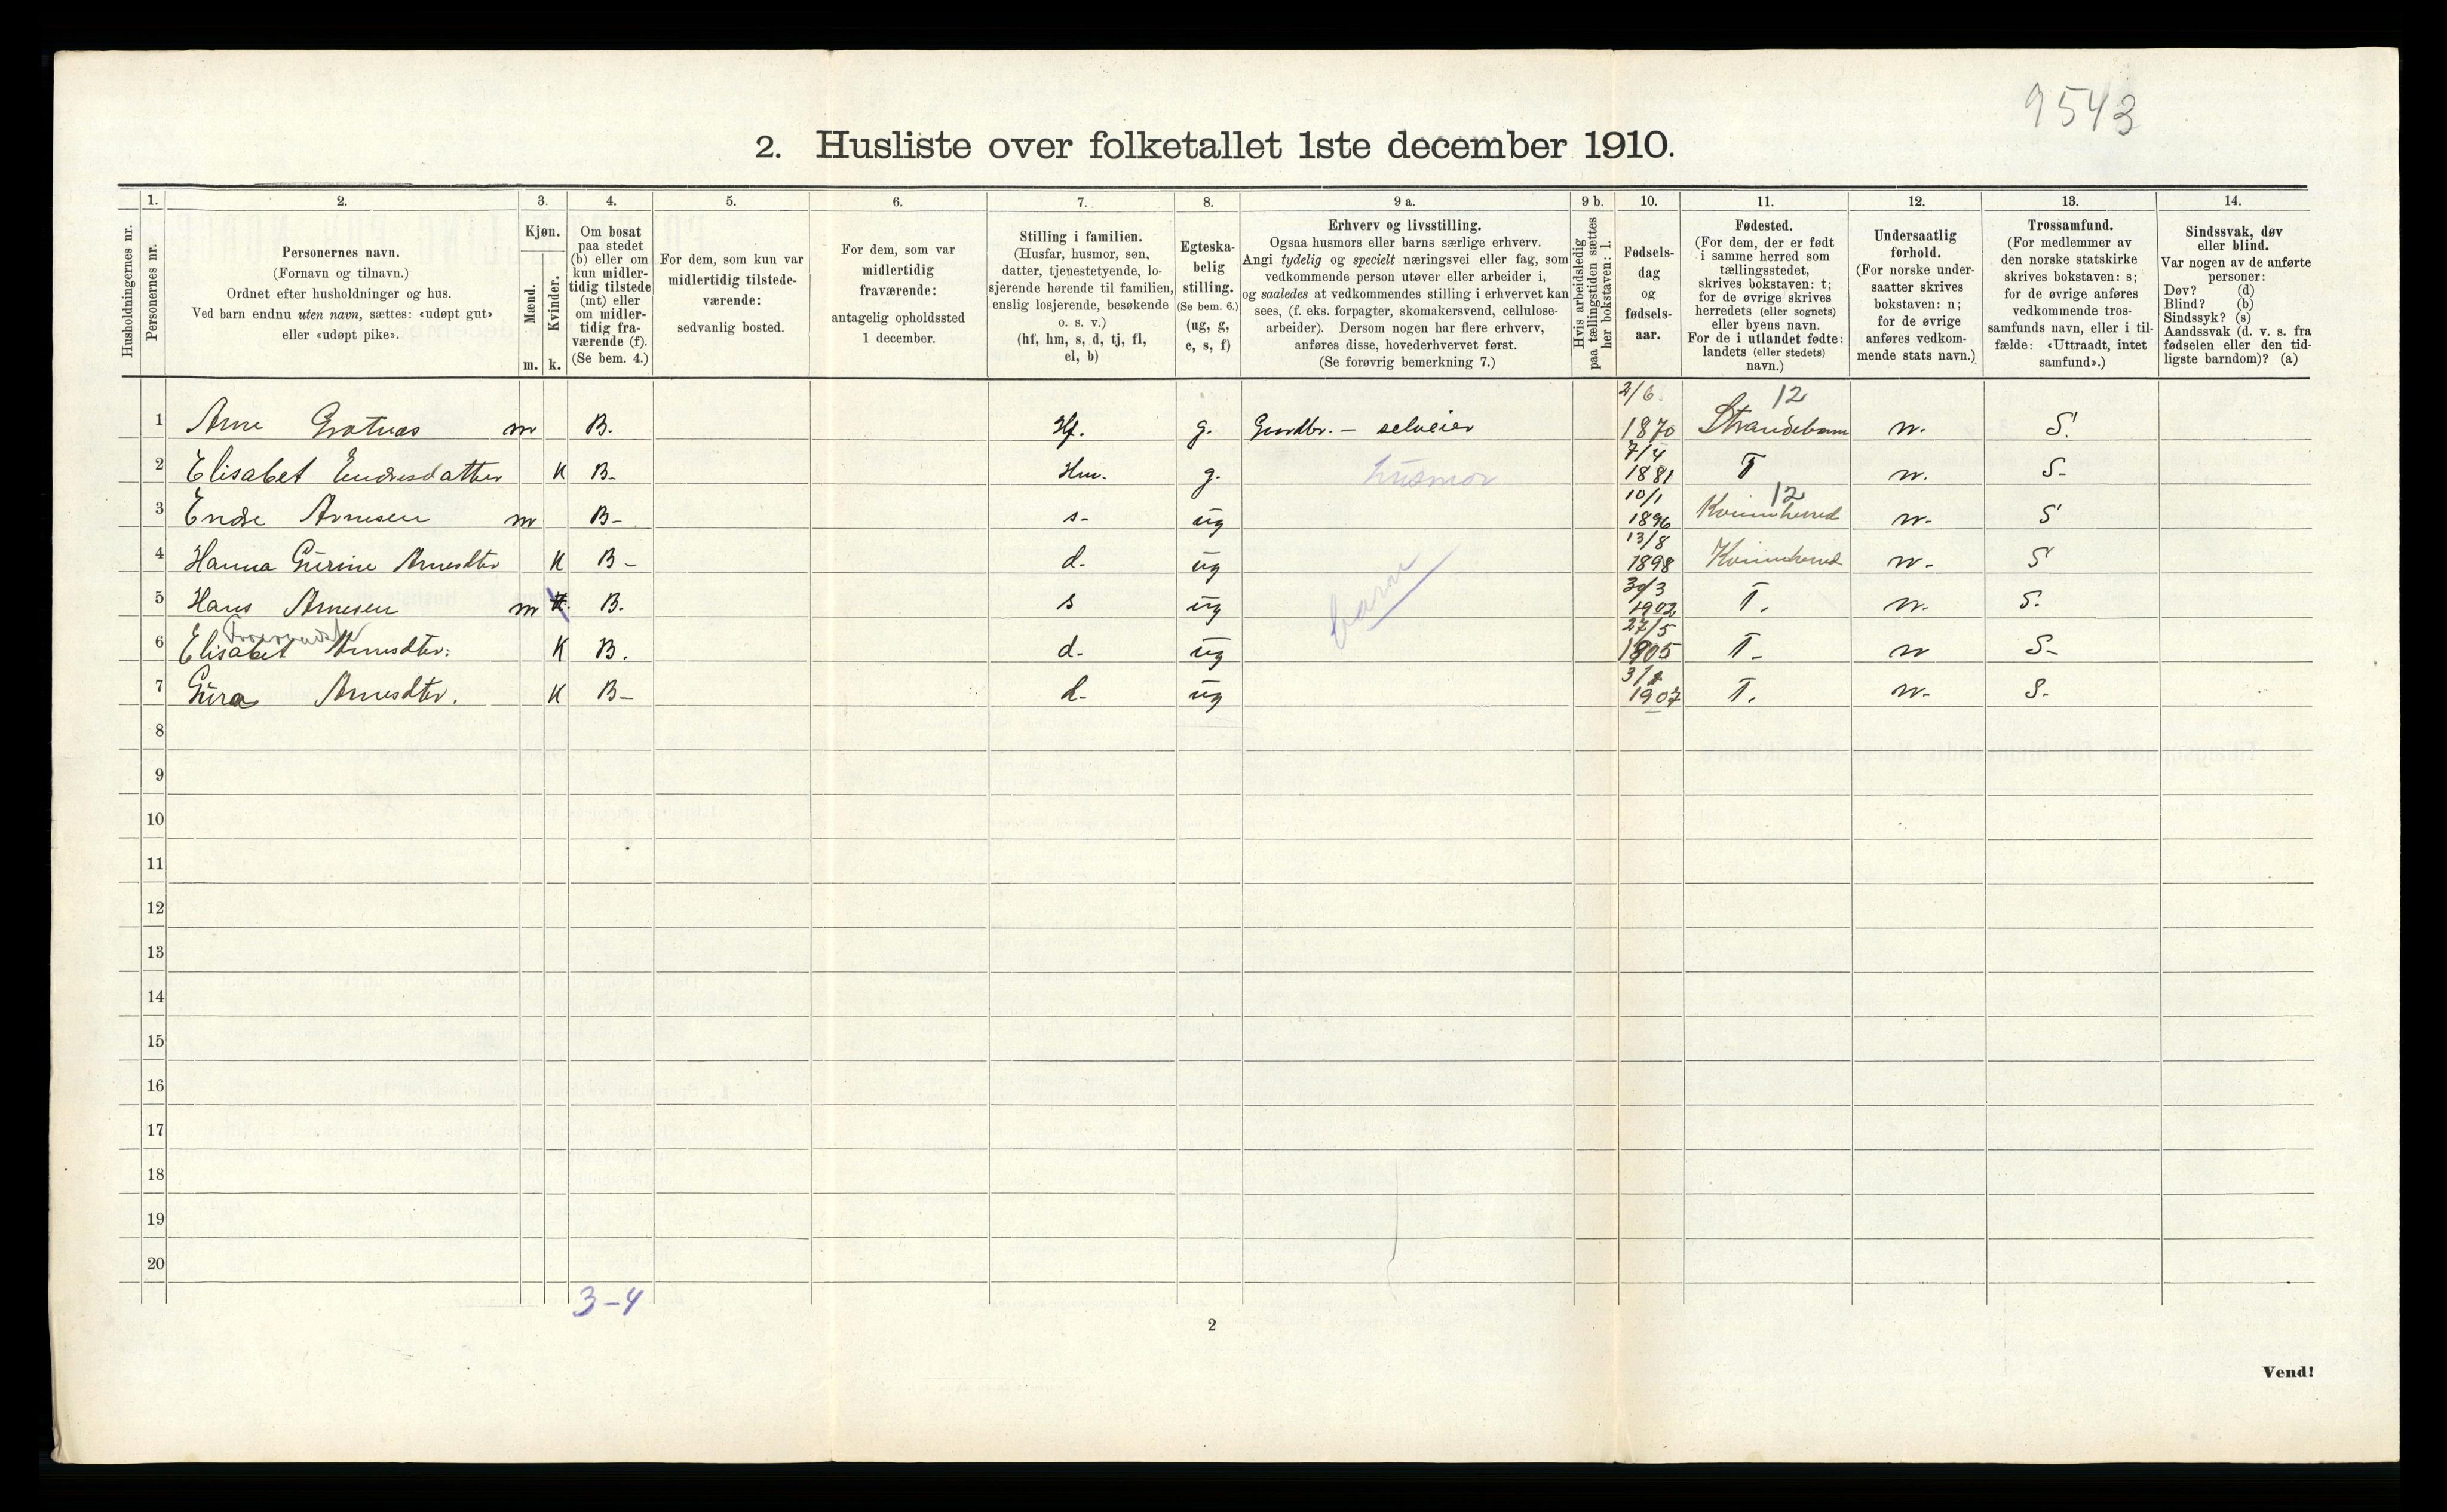 9543
2. Husliste over folketallet 1ste december 1910.
1. 2. 3. 4. 5. 6. 7. 8. 9 a. 9 b. 10. 11. 12. 13. 14.
Husholdningernes nr.
Personernes nr.
Personernes navn.
(Fornavn og tilnavn.)
Ordnet efter husholdninger og hus.
Ved barn endnu uten navn, sættes: «udøpt gut»
eller «udøpt pike».
Kjøn.
Mænd.
Kvinder.
m. k.
Om bosat
paa stedet
(b) eller om
kun midler-
tidig tilstede
(mt) eller
om midler-
tidig fra-
værende (f).
(Se bem. 4.)
For dem, som kun var
midlertidig tilstede-
værende:
sedvanlig bosted.
For dem, som var
midlertidig
fraværende:
antagelig opholdssted
1 december.
Stilling i familien.
(Husfar, husmor, søn,
datter, tjenestetyende, lo-
sjerende hørende til familien,
enslig losjerende, besøkende
o. s. v.)
(hf, hm, s, d, tj, fl,
el, b)
Egteska-
belig
stilling.
(Se bem. 6.)
(ug, g,
e, s, f)
Erhverv og livsstilling.
Ogsaa husmors eller barns særlige erhverv.
Angi tydelig og specielt næringsvei eller fag, som
vedkommende person utøver eller arbeider i,
og saaledes at vedkommendes stilling i erhvervet kan
sees, (f. eks. forpagter, skomakersvend, cellulose-
arbeider). Dersom nogen har flere erhverv,
anføres disse, hovederhvervet først.
(Se forøvrig bemerkning 7.)
Hvis arbeidsledig
paa tællingstiden sættes
her bokstaven: l.
Fødsels-
dag
og
fødsels-
aar.
Fødested.
(For dem, der er født
i samme herred som
tællingsstedet,
skrives bokstaven: t;
for de øvrige skrives
herredets (eller sognets)
eller byens navn.
For de i utlandet fødte:
landets (eller stedets)
navn.)
Undersaatlig
forhold.
(For norske under-
saatter skrives
bokstaven: n;
for de øvrige
anføres vedkom-
mende stats navn.)
Trossamfund.
(For medlemmer av
den norske statskirke
skrives bokstaven: s;
for de øvrige anføres
vedkommende tros-
samfunds navn, eller i til-
fælde: «Uttraadt, intet
samfund».)
Sindssvak, døv
eller blind.
Var nogen av de anførte
personer:
Døv? (d)
Blind? (b)
Sindssyk? (s)
Aandssvak (d. v. s. fra
fødselen eller den tid-
ligste barndom)? (a)
2/6. 12
1 Arne Grotnæs m B. Hf. g. Gardbr. - selveier 1870 Strandebarm n. S.
7/4
2 Elisabet Endresdatter K B- Hm. g. husmor 1881 T n. S-
10/1 12
3 Endre Arnesen m B- s- ug 1896 Kvinnherred n- S
13/8
4 Hanna Gurine Arnesdtr K B- d- ug barn 1898 Kvinnherred n- S
30/3
5 Hans Arnesen m B. s ug 1902 T. n. S.
27/5
6 Elisabet Arnesdtr: K B. d- ug 1905 T- n S-
7 Gura Arnesdtr. K B- d- ug 1907 T. n- S.
8
9
10
11
12
13
14
15
16
17
18
19
20
3-4
2
Vend!